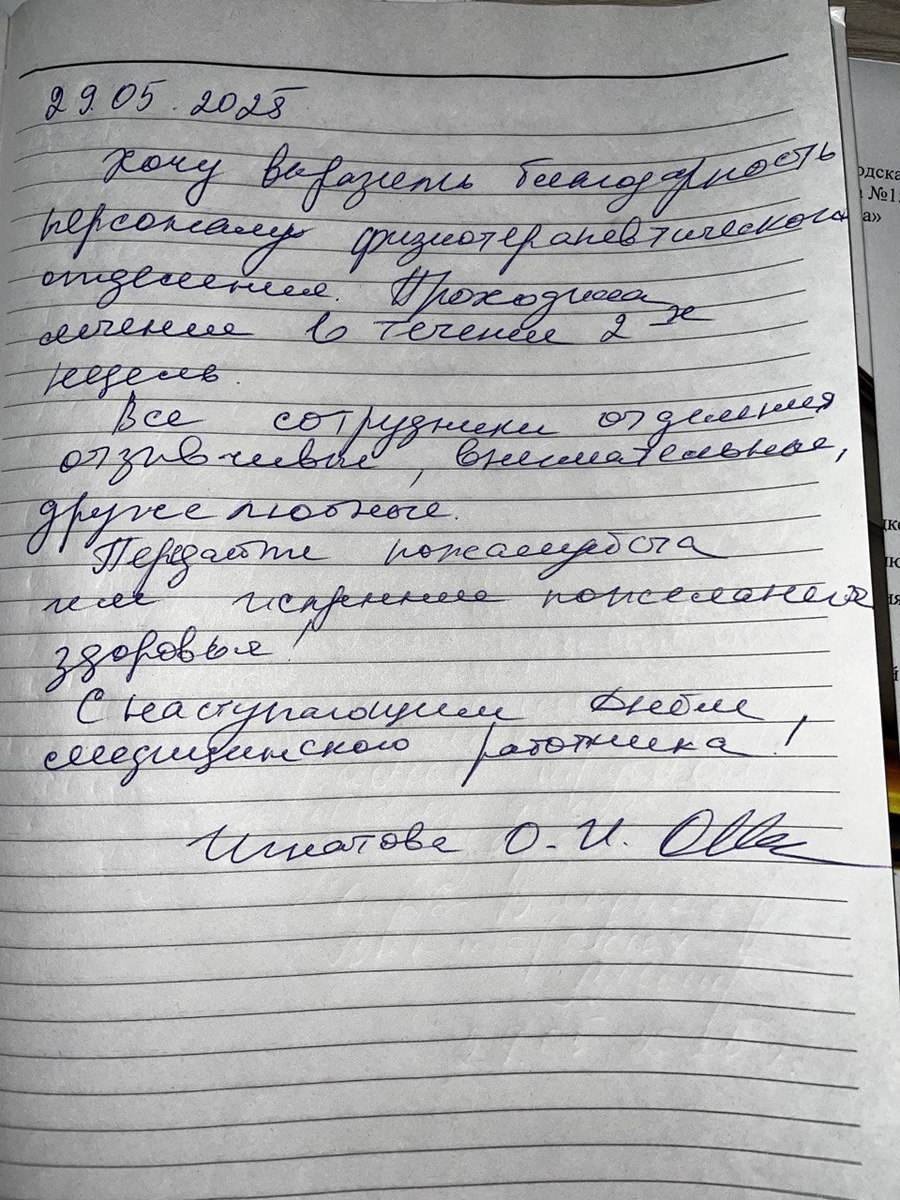 29.05.2025
Хочу выразить благодарность
персоналу физиотерапевтического
отделения. Проходила
лечение в течении 2х
недель.
Все сотрудники отделения
отзывчивые, внимательные,
дружелюбные.
Передайте пожалуйста
им искренние пожелания
здоровья!
С наступающим Днём
медицинского работника!
Игнатова О.И.
одска
№1
а»